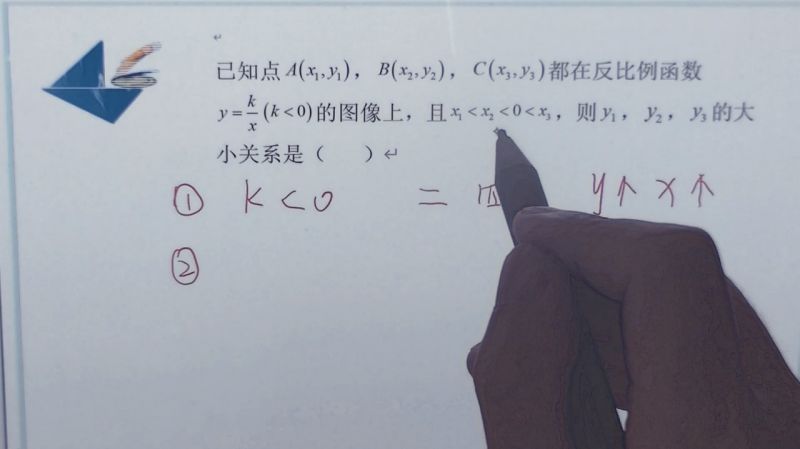 已知点 A(x₁,y₁)，B(x₂,y₂)，C(x₃,y₃)都在反比例函数
y=k/x (k<0)的图像上，且 x₁<x₂<0<x₃，则 y₁，y₂，y₃的大
小关系是（ ）
① K<0 二 四 y↑ x↑
②